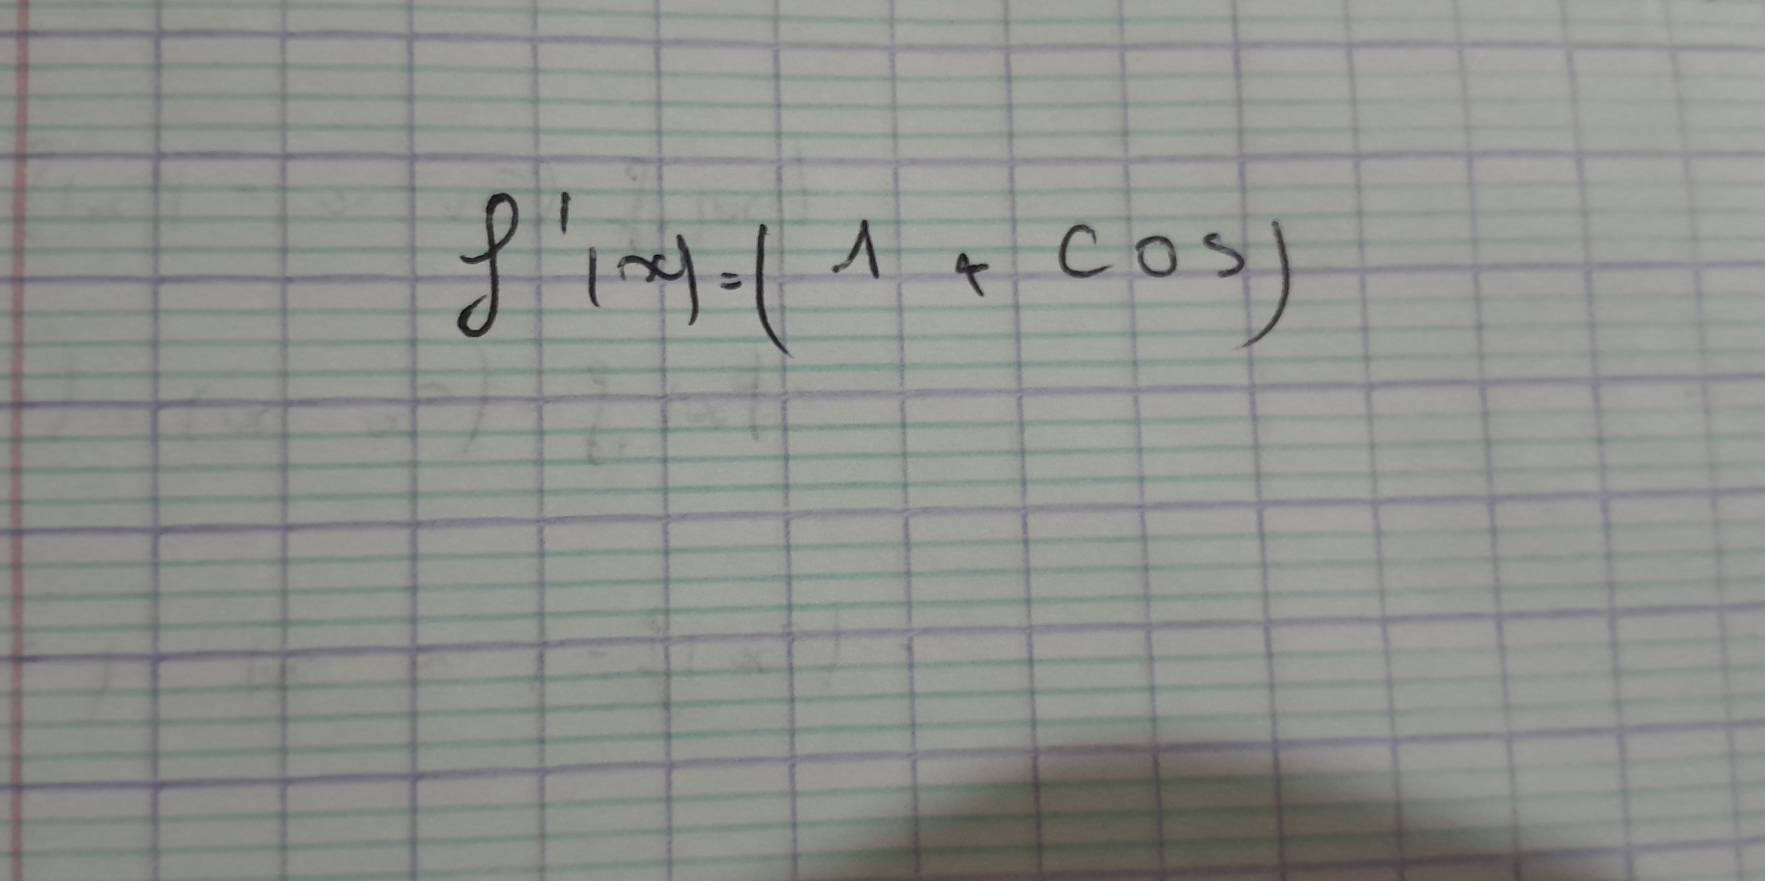 f'(x)=(1 + cos)